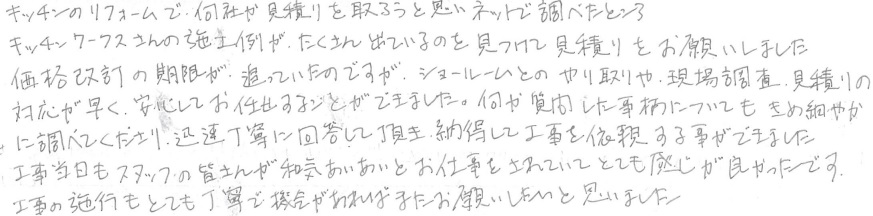 キッチンのリフォームで、何社か見積りを取ろうと思いネットで調べたところ
キッチンワークスさんの施工例が、たくさん出ているのを見つけて見積りをお願いしました
価格改訂の期限が、迫っていたのですが、ショールームとのやり取りや、現場調査、見積りの
対応が早く、安心してお任せすることができました。何か質問した事柄についてもきめ細やか
に調べてくださり、迅速丁寧に回答して頂き、納得して工事を依頼する事ができました
工事当日もスタッフの皆さんが和気あいあいとお仕事をされていてとても感じが良かったです。
工事の施行もとても丁寧で機会があればまたお願いしたいと思いました